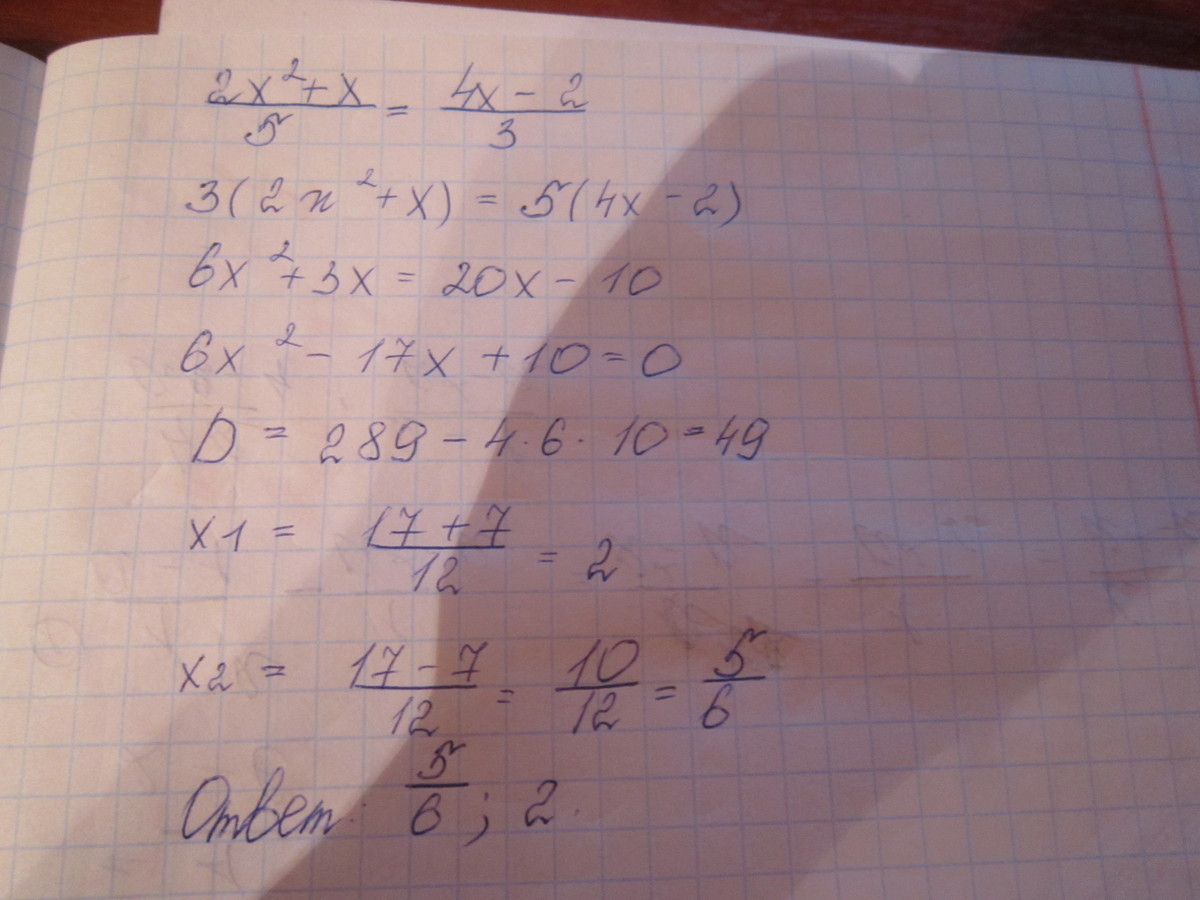 (2x²+x)/5 = (4x-2)/3
3(2x²+x) = 5(4x-2)
6x²+3x = 20x-10
6x²-17x+10=0
D = 289-4·6·10=49
x1 = (17+7)/12 = 2
x2 = (17-7)/12 = 10/12 = 5/6
Ответ: 5/6; 2.